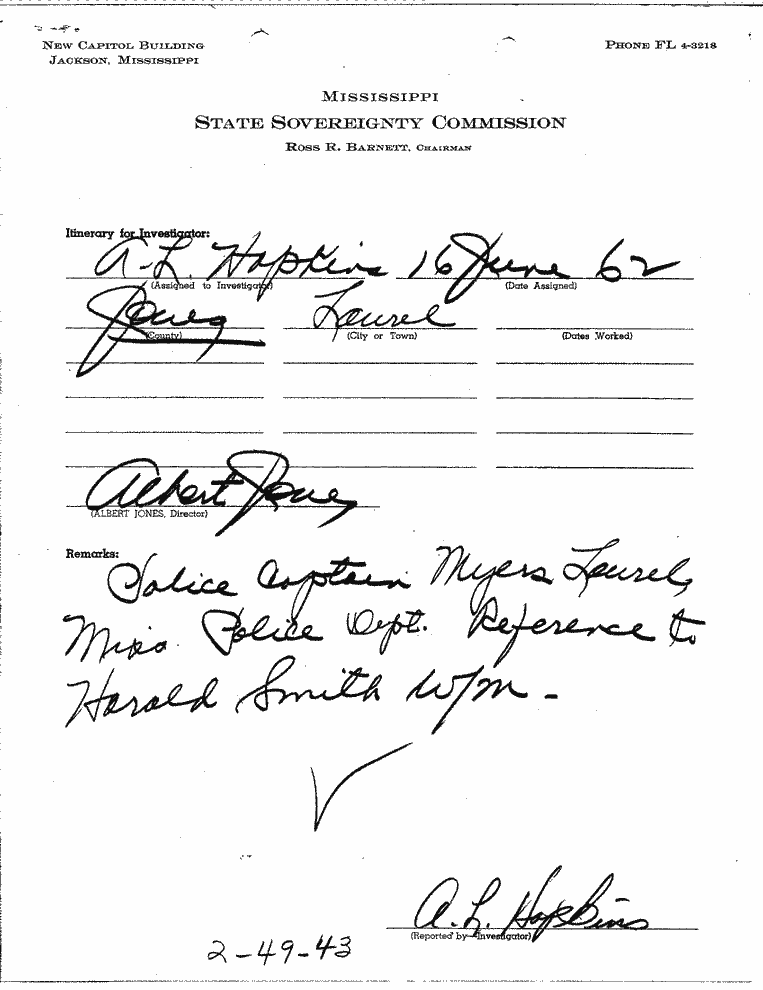 NEW CAPITOL BUILDING
JACKSON, MISSISSIPPI
PHONE FL 4-3218
MISSISSIPPI
STATE SOVEREIGNTY COMMISSION
ROSS R. BARNETT, CHAIRMAN
Itinerary for Investigator:
A. L. Hopkins 16 June 62
(Assigned to Investigator) (Date Assigned)
Jones Laurel
(County) (City or Town) (Dates Worked)
Albert Jones
(ALBERT JONES, Director)
Remarks:
Police Captain Myers Laurel,
Miss. Police Dept. Reference to
Harold Smith W/M -
A. L. Hopkins
(Reported by Investigator)
2-49-43